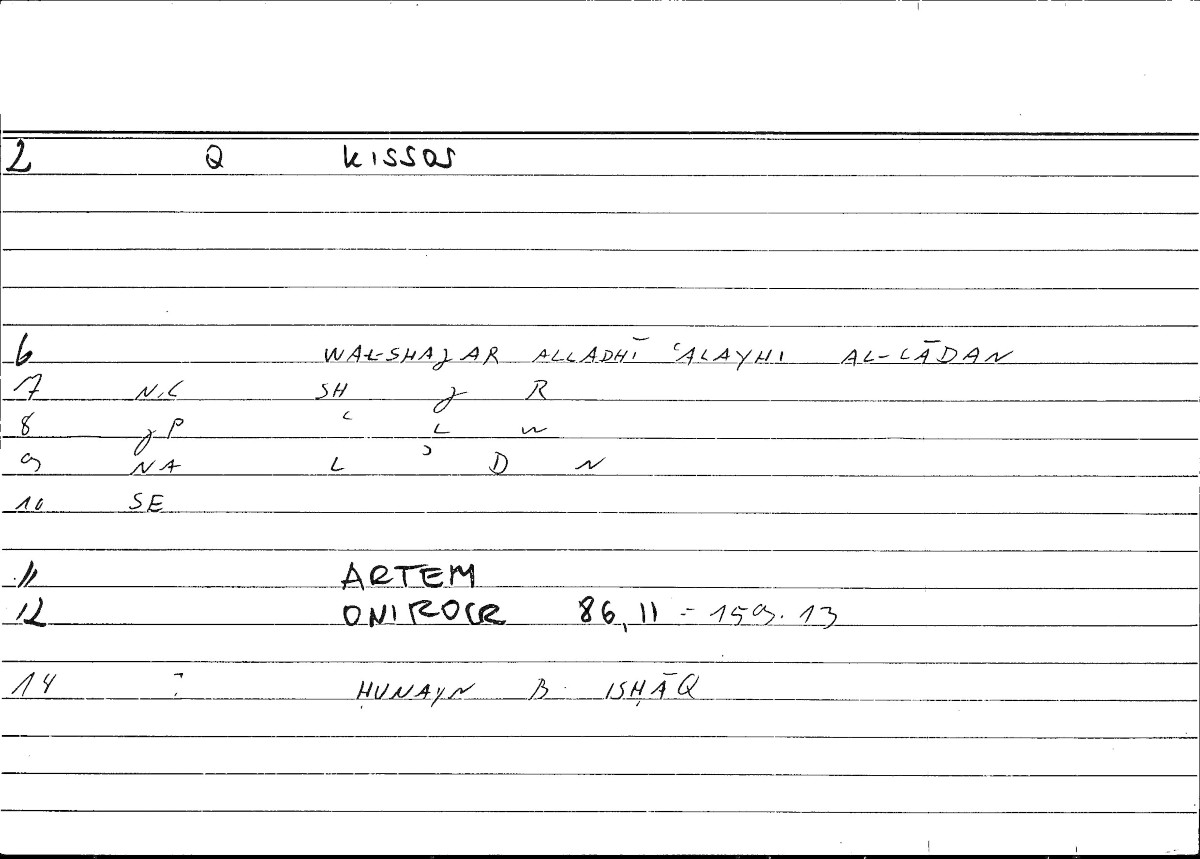 2 Q KISSOS
6 WAL-SHAJAR ALLADHĪ ʿALAYHI AL-LĀDAN
7 N.C SH J R
8 JP ʿ L W
9 NA L ʾ D N
10 SE
11 ARTEM
12 ONIROCR 86,11 = 159.13
14 : ḤUNAYN B. ISḤĀQ